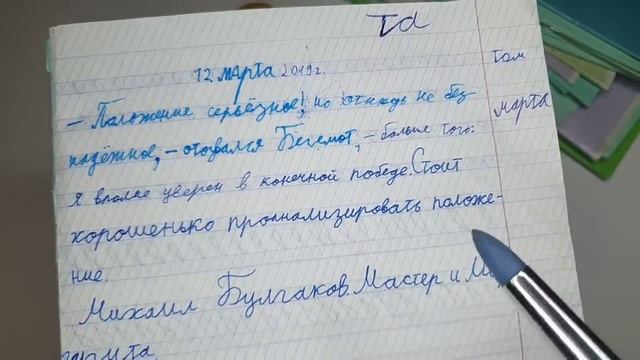 Td
12 марта 2019г.
том
– Положение серьёзное!, но отнюдь не без-
марта
надёжное, – отозвался Бегемот, – больше того:
я вполне уверен в конечной победе. Стоит
хорошенько проанализировать положе-
ние.
Михаил Булгаков. Мастер и Ма
гарита.